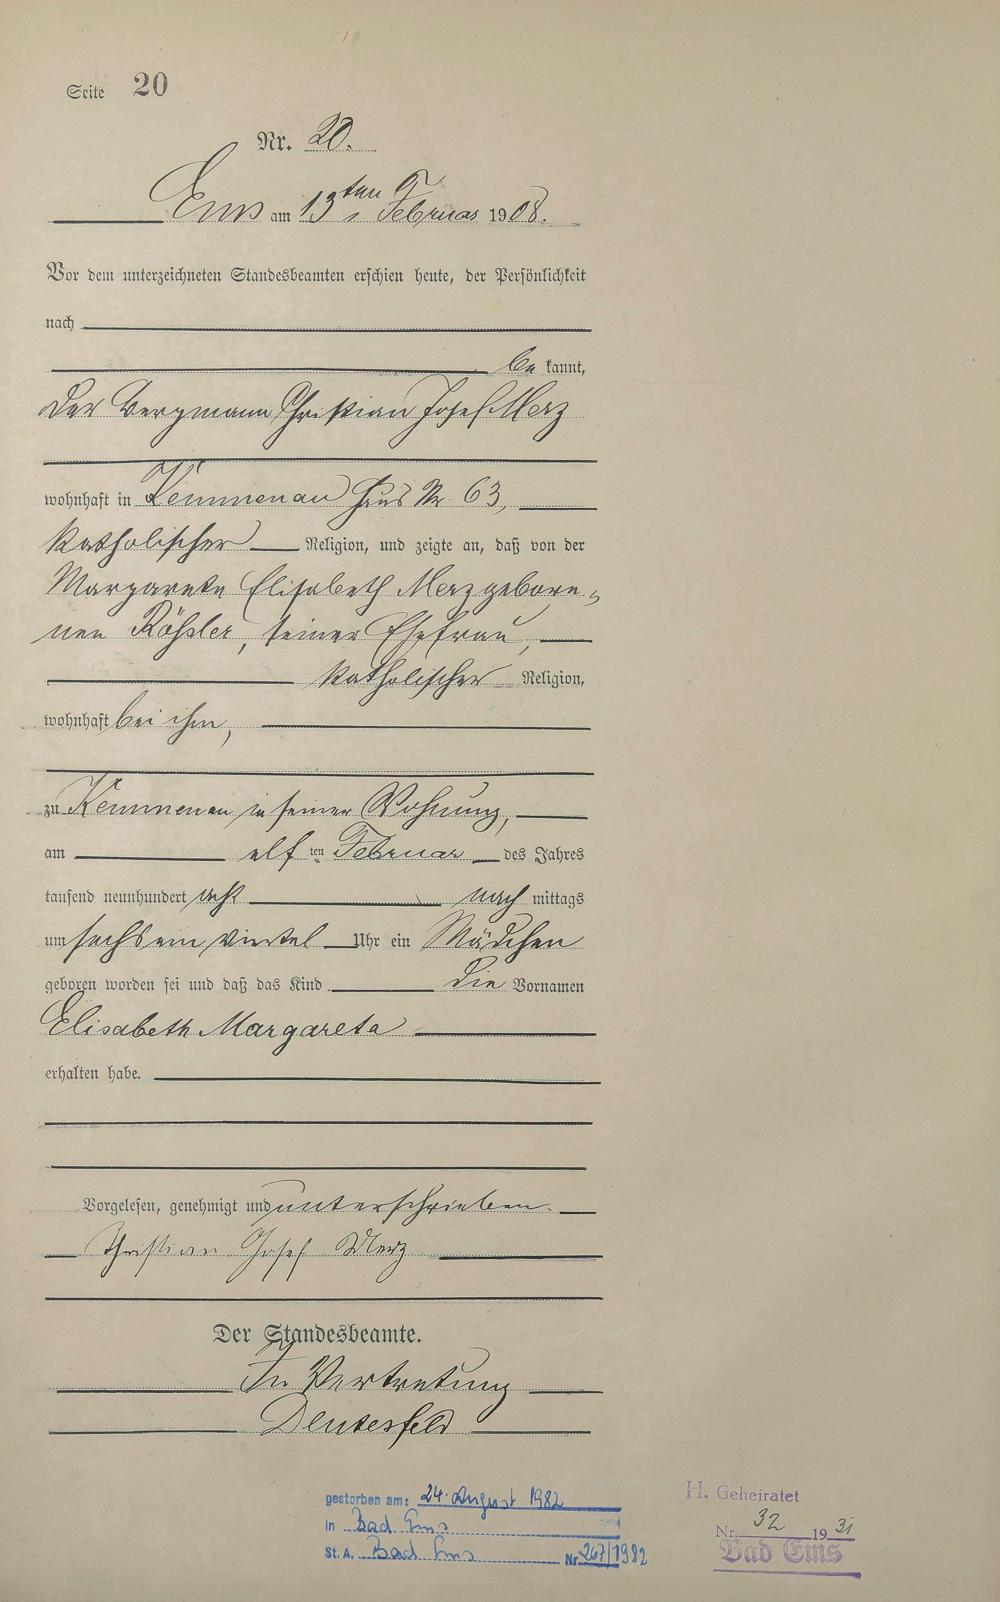 Seite 20
Nr. 20.
Ems am 13ten Februar 1908.
Vor dem unterzeichneten Standesbeamten erschien heute, der Persönlichkeit
nach
bekannt,
der Bergmann Christian Josef Merz
wohnhaft in Kemmenau Haus Nr. 63,
katholischer Religion, und zeigte an, daß von der
Margarete Elisabeth Merz gebore-
nen Rößler, seiner Ehefrau,
katholischer Religion,
wohnhaft bei ihm,
zu Kemmenau in seiner Wohnung,
am elf ten Februar des Jahres
tausend neunhundert acht nach mittags
um sechs ein viertel Uhr ein Mädchen
geboren worden sei und daß das Kind die Vornamen
Elisabeth Margareta
erhalten habe.
Vorgelesen, genehmigt und unterschrieben.
Christian Josef Merz
Der Standesbeamte.
In Vertretung
gestorben am: 24. August 1982
in Bad Ems
St. A. Bad Ems Nr. 267/1982
H. Geheiratet
Nr. 32 1931
Bad Ems